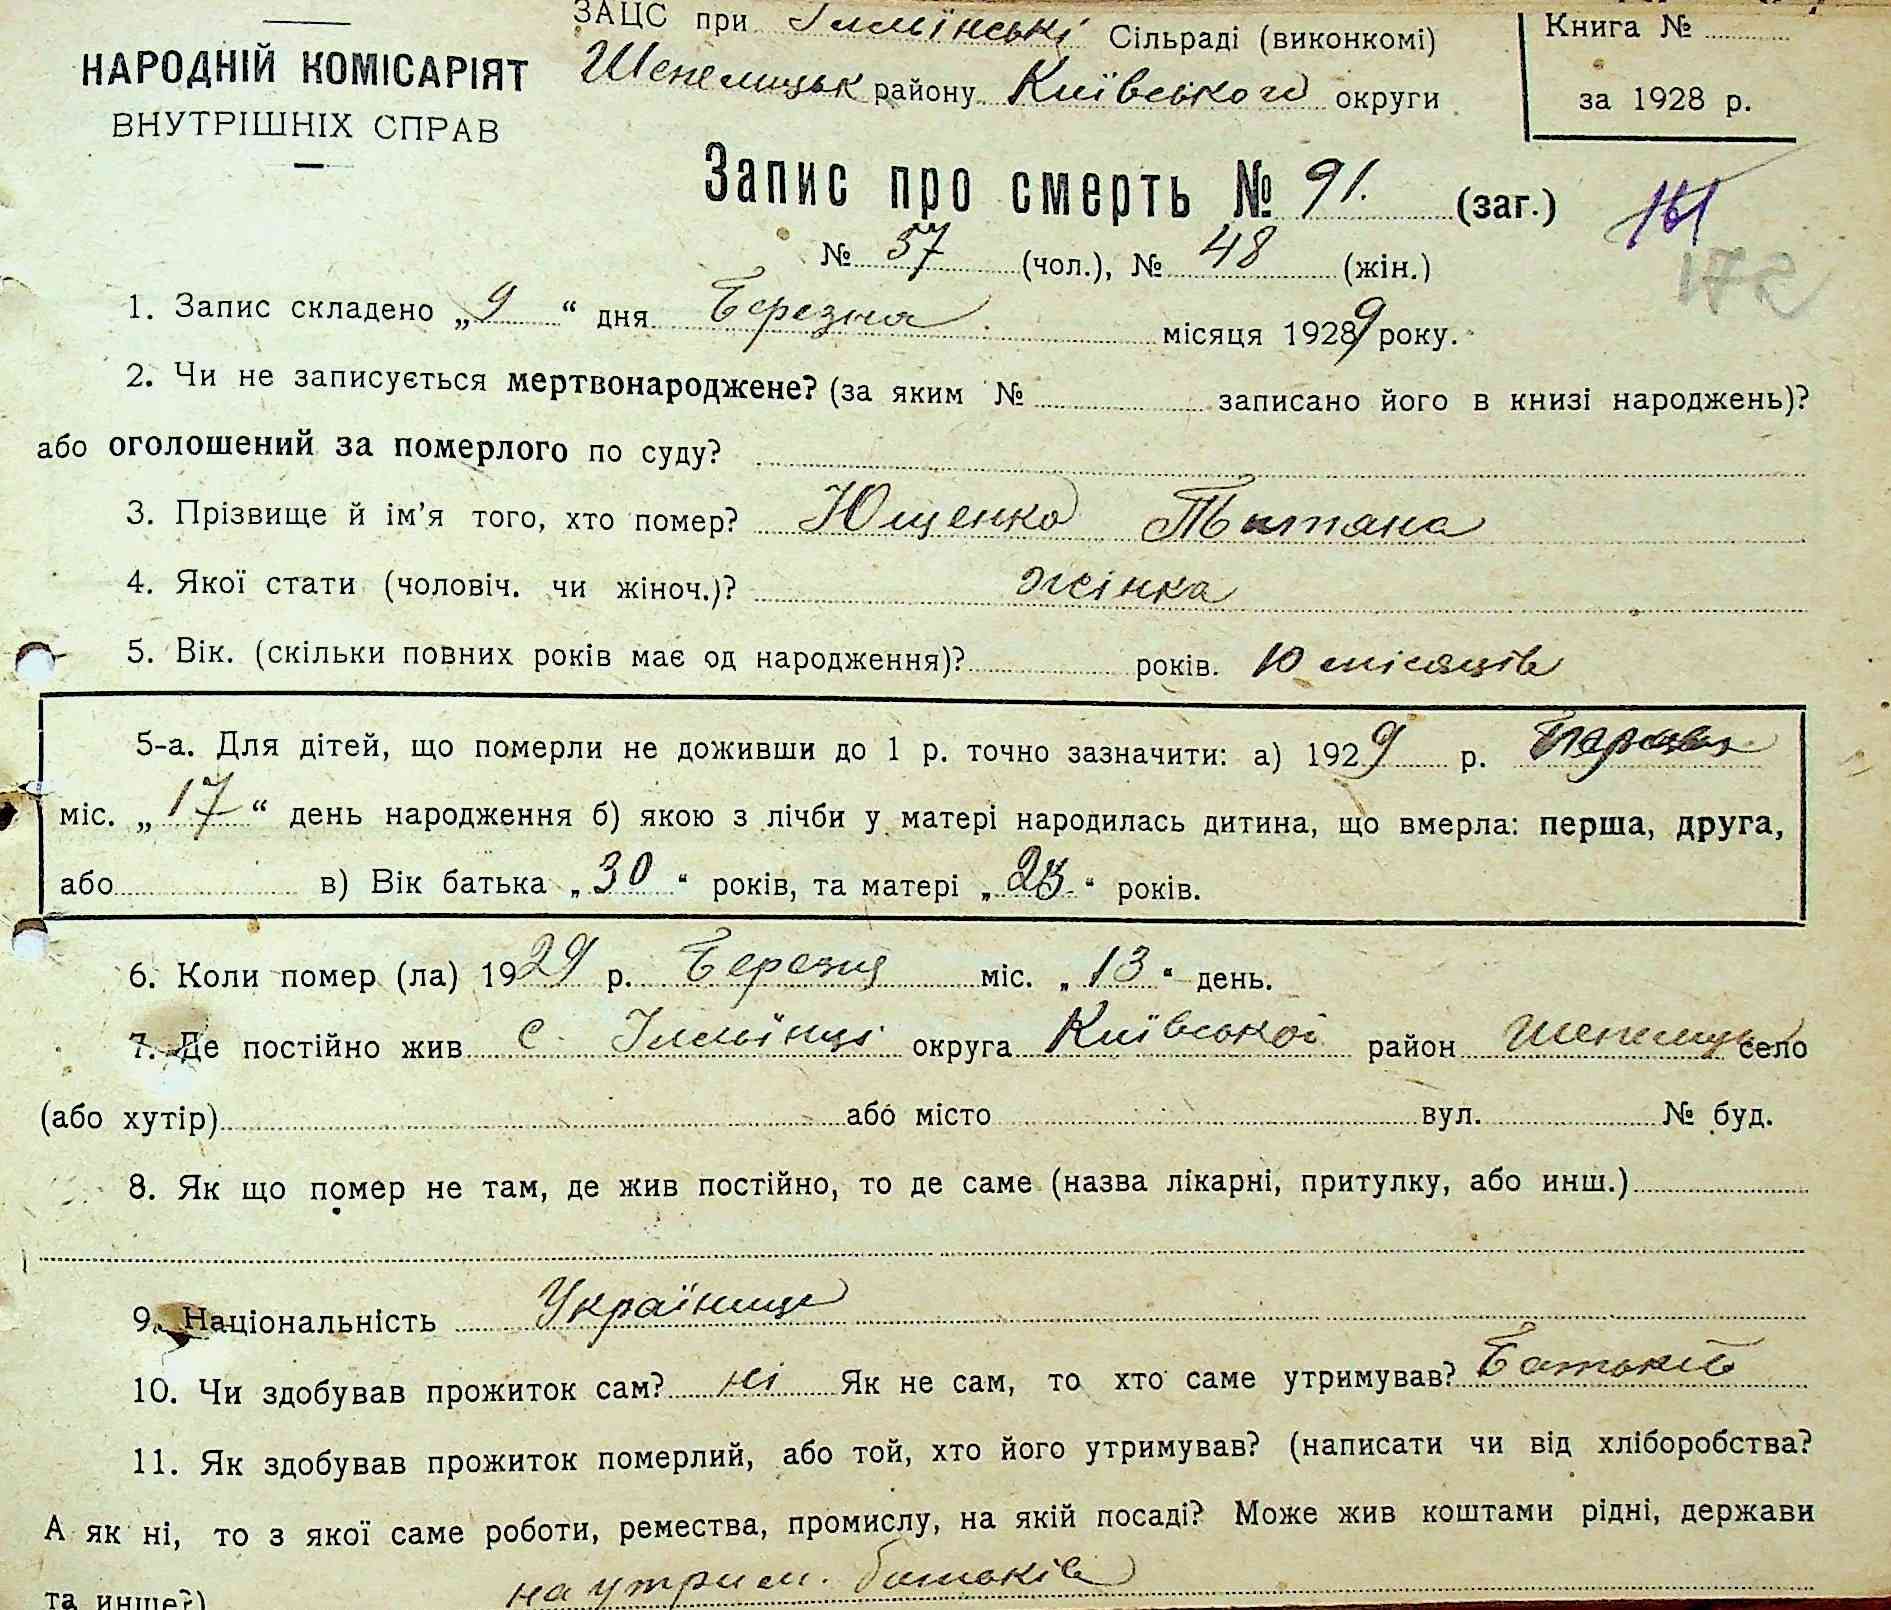 ЗАЦС при Іллїнські Сільраді (виконкомі)
Шепелицьк району Київського округи
Книга №
за 1928 р.
НАРОДНІЙ КОМІСАРІЯТ
ВНУТРІШНІХ СПРАВ
Запис про смерть № 91. (заг.)
161
172
№ 57 (чол.), № 48 (жін.)
1. Запис складено „9“ дня Березня місяця 19289 року.
2. Чи не записується мертвонароджене? (за яким № записано його в книзі народжень)?
або оголошений за померлого по суду?
3. Прізвище й ім’я того, хто помер? Ющенко Тытяна
4. Якої стати (чоловіч. чи жіноч.)? жінка
5. Вік. (скільки повних років має од народження)? років. 10 місяців
5-а. Для дітей, що померли не доживши до 1 р. точно зазначити: а) 1929 р.
міс. „17“ день народження б) якою з лічби у матері народилась дитина, що вмерла: перша, друга,
або в) Вік батька „30“ років, та матері „ “ років.
6. Коли помер (ла) 1929 р. Березня міс. „13“ день.
7. Де постійно жив с. Іллїнці округа Київської район Шепелицьк село
(або хутір) або місто вул. № буд.
8. Як що помер не там, де жив постійно, то де саме (назва лікарні, притулку, або инш.)
9. Національність Українце
10. Чи здобував прожиток сам? ні Як не сам, то хто саме утримував? Батьків
11. Як здобував прожиток померлий, або той, хто його утримував? (написати чи від хліборобства?
А як ні, то з якої саме роботи, ремества, промислу, на якій посаді? Може жив коштами рідні, держави
та инше?) на утрим. батьків